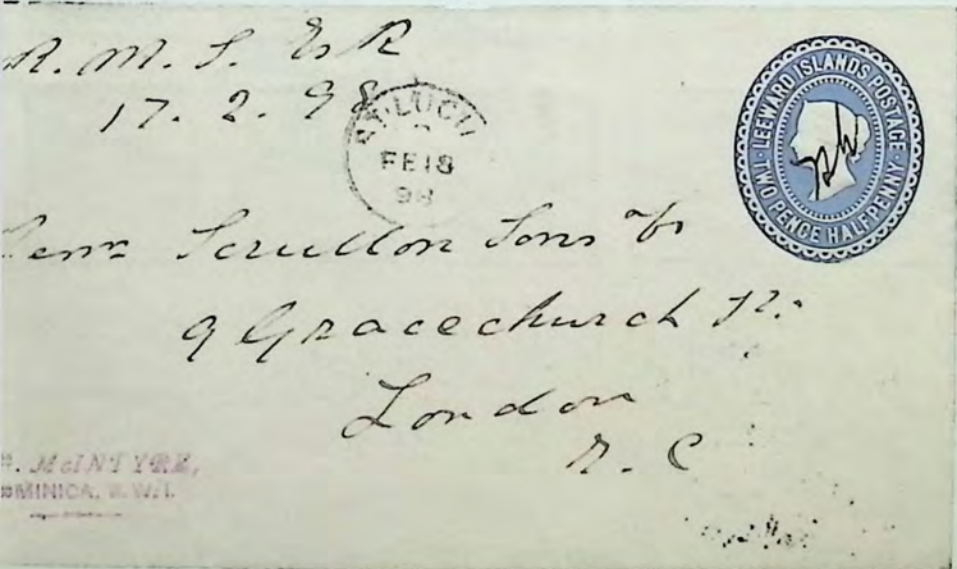 R. M. S. Esk
17. 2. 98
ST. LUCIA
FE 18
98
LEEWARD ISLANDS POSTAGE
TWO PENCE HALFPENNY
Messrs Scrutton Sons & Co
9 Gracechurch St.
London
E. C
McINTYRE,
DOMINICA, B.W.I.